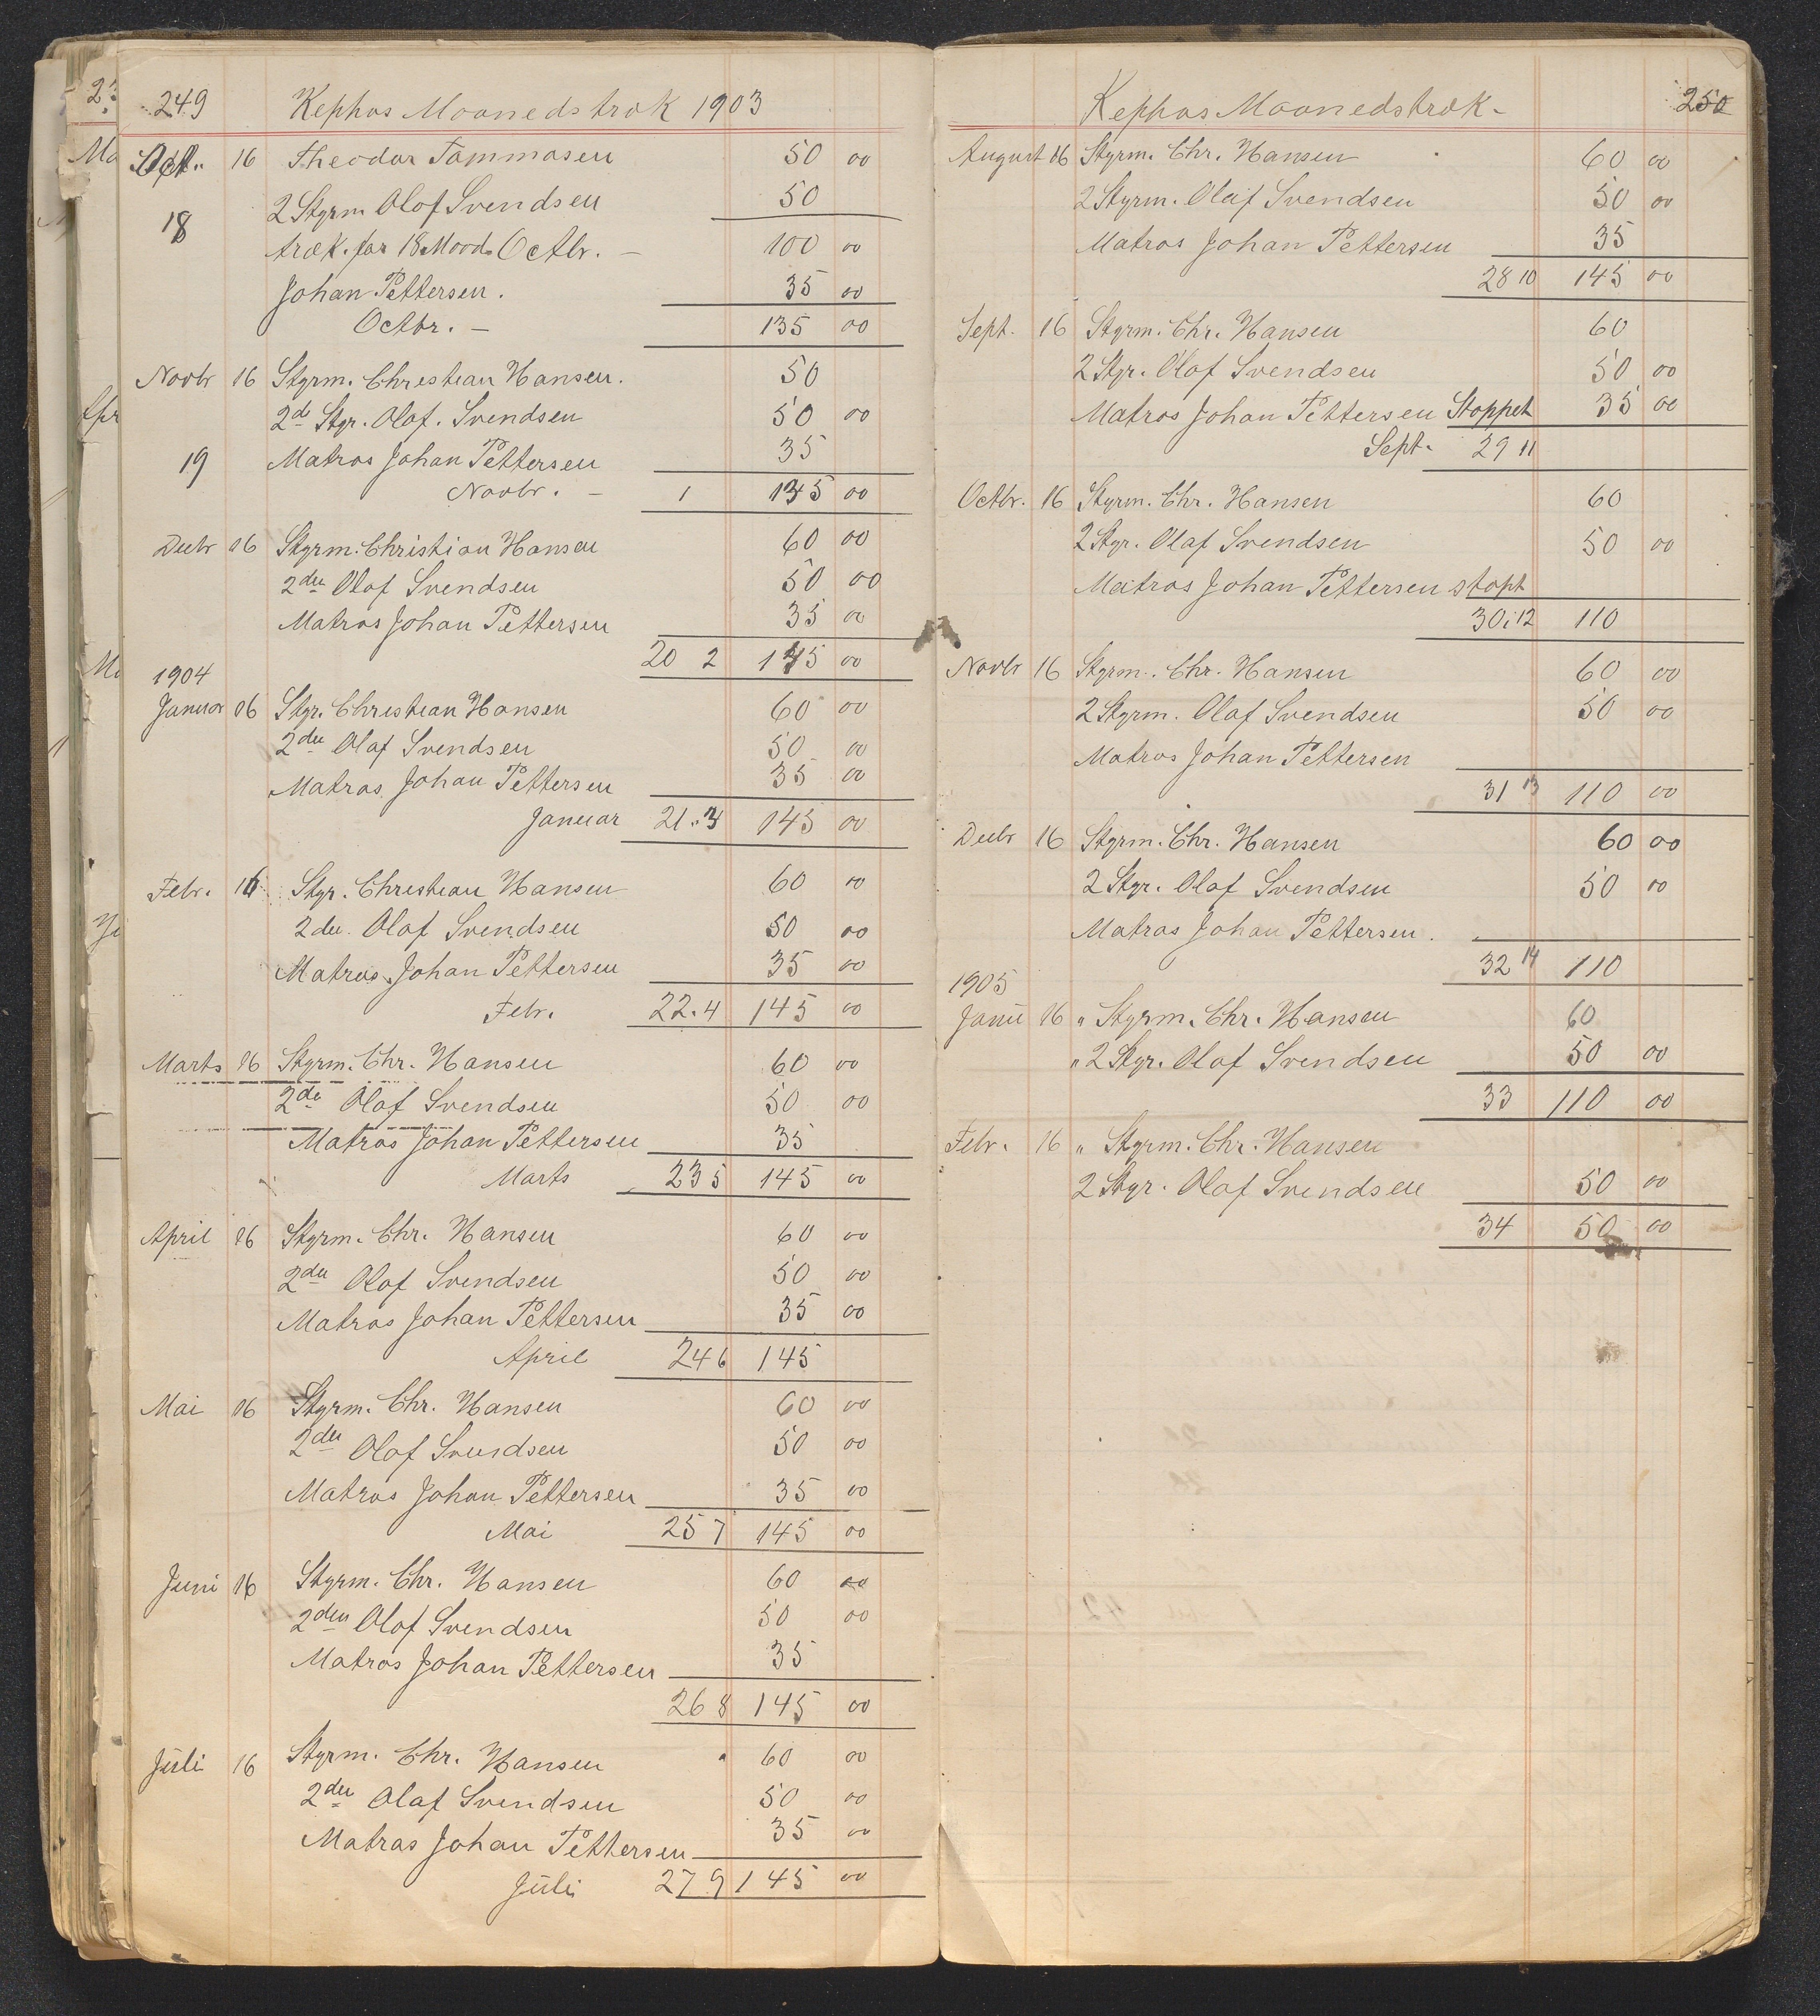 249 Kephas Maanedstræk 1903
Oct. 16 Theodor Tammasen 50 00
2 Styrm Olaf Svendsen 50
18 træk. for 18 Maad. Octbr. — 100 00
Johan Pettersen. 35 00
Octbr. — 135 00
Novbr 16 Styrm. Christian Hansen. 50
2d Styr. Olaf. Svendsen 50 00
19 Matros Johan Pettersen 35
Novbr. — 1 135 00
Decbr 16 Styrm. Christian Hansen 60 00
2den Olaf Svendsen 50 00
Matros Johan Pettersen 35 00
20 2 145 00
1904
Januar 16 Styr. Christian Hansen 60 00
2den Olaf Svendsen 50 00
Matros Johan Pettersen 35 00
Januar 21. 3 145 00
Febr. 16 Styr. Christian Hansen 60 00
2den Olaf Svendsen 50 00
Matros Johan Pettersen 35 00
Febr. 22. 4 145 00
Marts 16 Styrm. Chr. Hansen 60 00
2de Olaf Svendsen 50 00
Matros Johan Pettersen 35
Marts 23 5 145 00
April 16 Styrm. Chr. Hansen 60 00
2den Olaf Svendsen 50 00
Matros Johan Pettersen 35 00
April 24 6 145
Mai 16 Styrm. Chr. Hansen 60 00
2den Olaf Svendsen 50 00
Matros Johan Pettersen 35 00
Mai 25 7 145 00
Juni 16 Styrm. Chr. Hansen 60 00
2den Olaf Svendsen 50 00
Matros Johan Pettersen 35
26 8 145 00
Juli 16 Styrm. Chr. Hansen 60 00
2den Olaf Svendsen 50 00
Matros Johan Pettersen 35 00
Juli 27 9 145 00
Kephas Maanedstræk - 250
August 16 Styrm. Chr. Hansen 60 00
2 Styrm. Olaf Svendsen 50 00
Matros Johan Pettersen 35
28 10 145 00
Sept. 16 Styrm. Chr. Hansen 60
2 Styr. Olaf Svendsen 50 00
Matros Johan Pettersen Stoppet 35 00
Sept. 29 11
Octbr. 16 Styrm. Chr. Hansen 60
2 Styr. Olaf Svendsen 50 00
Matros Johan Pettersen stopt
30 12 110
Novbr 16 Styrm. Chr. Hansen 60 00
2 Styrm. Olaf Svendsen 50 00
Matros Johan Pettersen
31 13 110 00
Decbr 16 Styrm. Chr. Hansen 60 00
2 Styr. Olaf Svendsen 50 00
Matros Johan Pettersen.
32 14 110
1905
Janu 16 " Styrm. Chr. Hansen 60
" 2 Styr. Olaf Svendsen 50 00
33 110 00
Febr. 16 " Styrm. Chr. Hansen
2 Styr. Olaf Svendsen 50 00
34 50 00